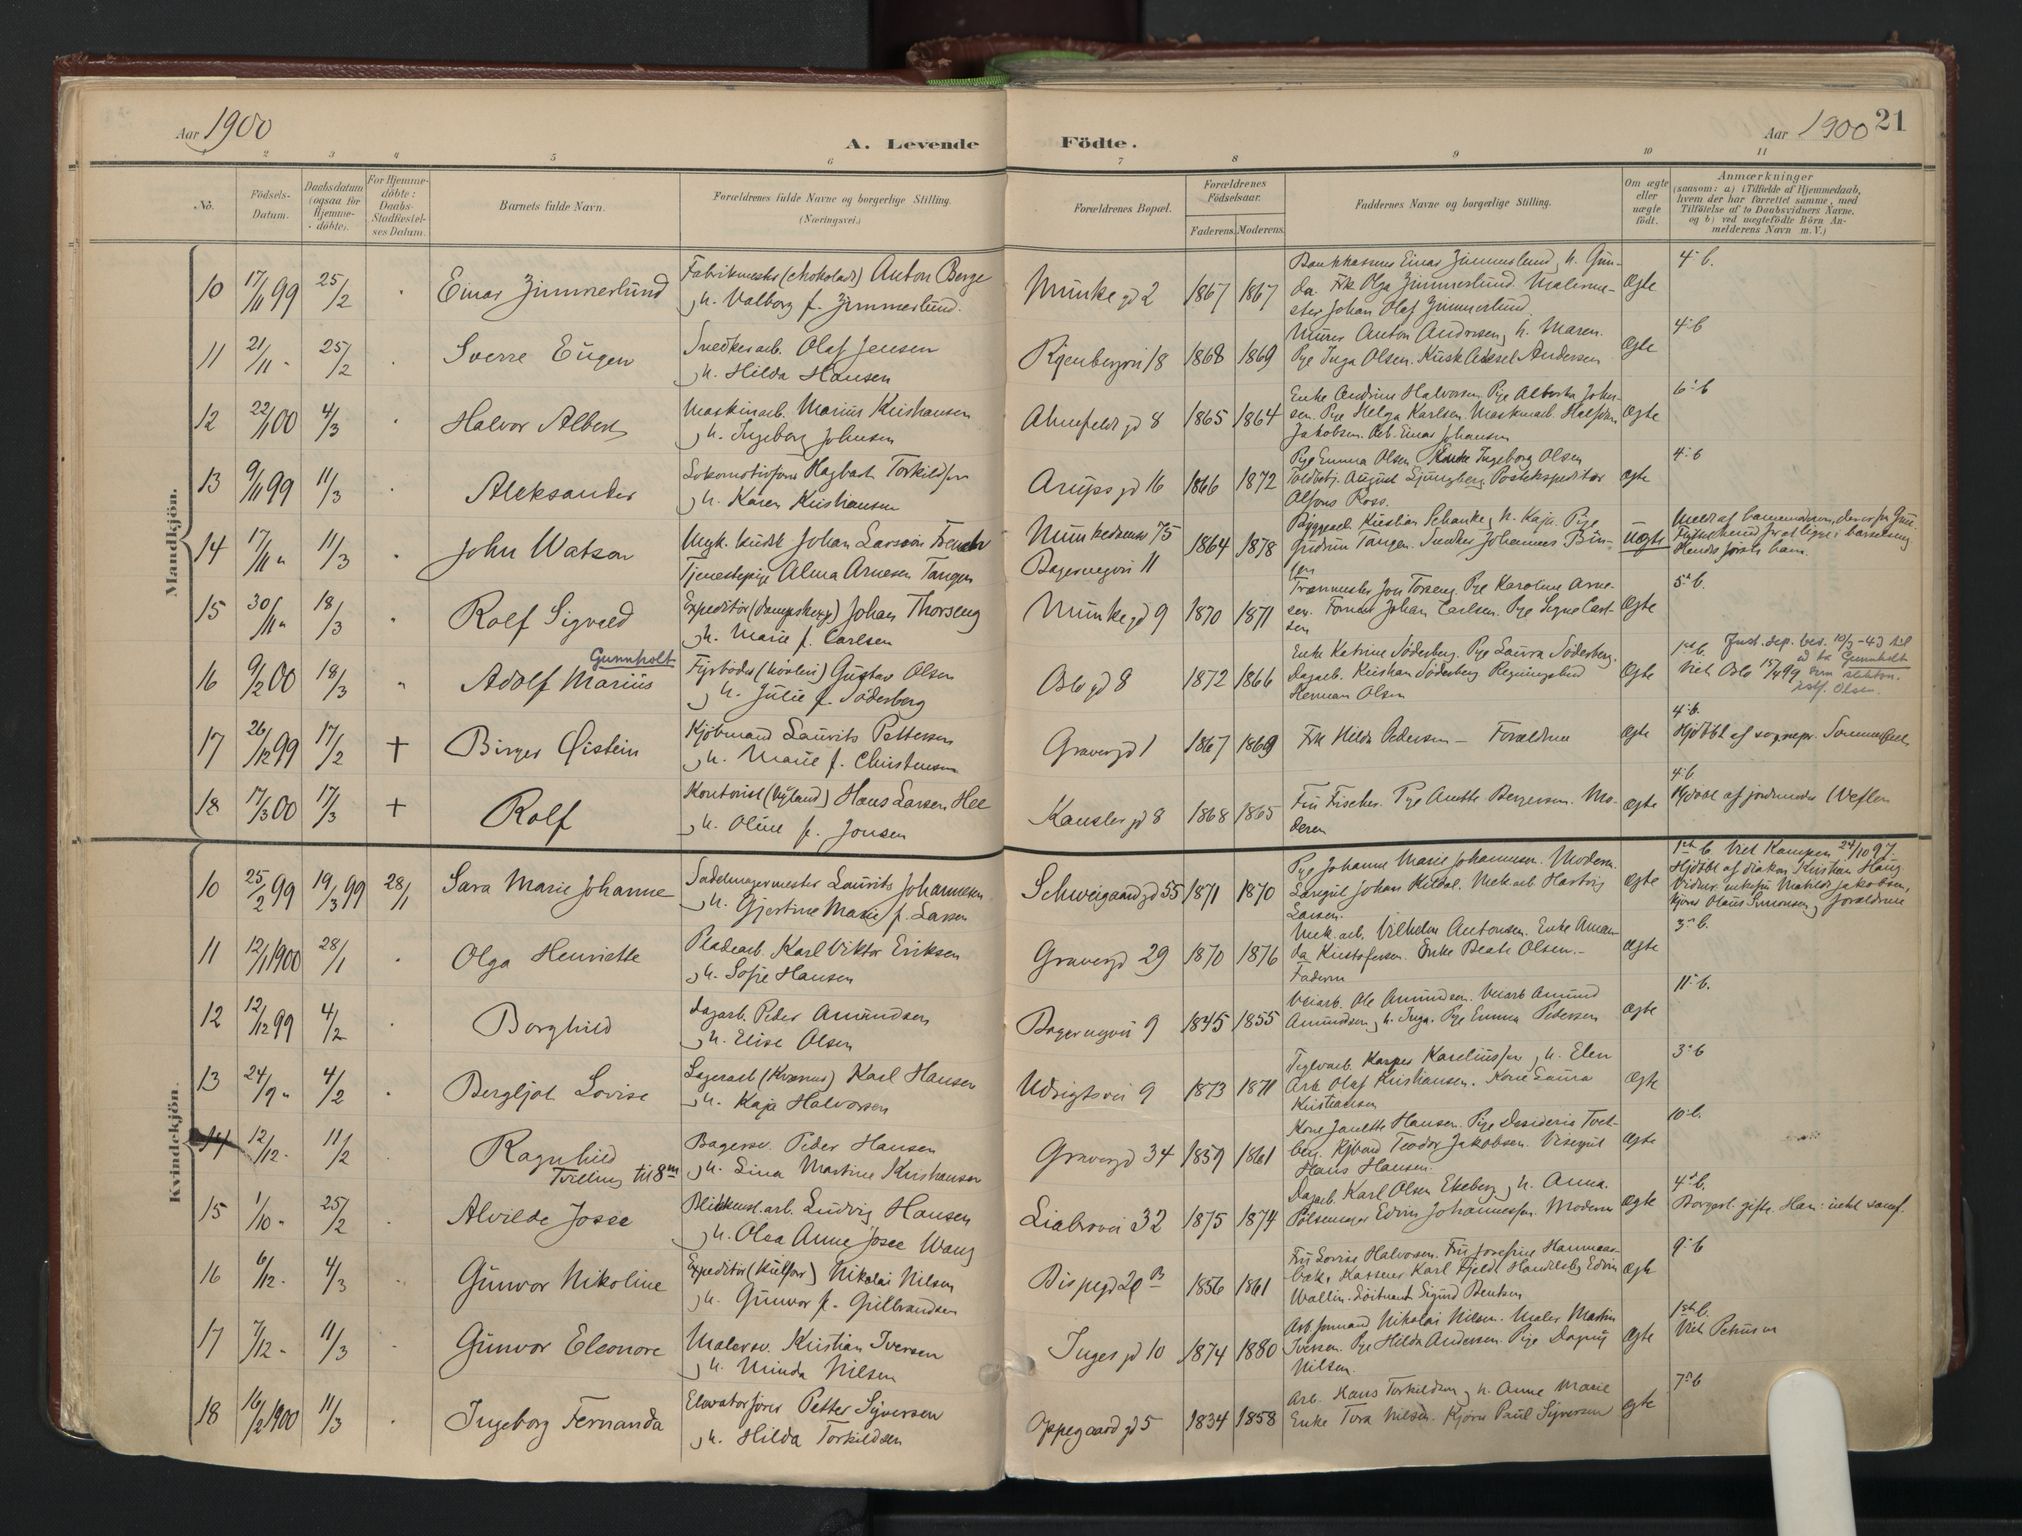 Aar 1900
A. Levende Födte.
Aar 1900 21
1 2 3 4 5 6 7 8 9 10 11
No.
Födsels-Datum.
Daabsdatum (ogsaa for Hjemme-döbte).
For Hjemme-döbte: Daabs-Stadfæstel-ses Datum.
Barnets fulde Navn.
Forældrenes fulde Navne og borgerlige Stilling. (Næringsvei.)
Forældrenes Bopæl.
Forældrenes Födselsaar.
Faderens. Moderens.
Faddernes Navne og borgerlige Stilling.
Om ægte eller uægte födt.
Anmærkninger
(saasom: a) i Tilfælde af Hjemmedaab, hvem der har forrettet samme, med Tilföielse af to Daabsvidners Navne, og b) ved uægtefödte Börn An-melderens Navn m. V.)
Mandkjön.
10 17/11 99 25/2 Einar Zimmerlund
Fabrikmester (chokolade) Anton Berge
h. Valborg f. Zimmerlund.
Munkegd 2 1867 1867
Einar Zimmerlund, h. Gun-
da. Frk Olga Zimmerlund. Malerme-
ster Johan Olaf Zimmerlund
Ægte 4 b.
11 21/11 25/2 Sverre Eugen
Snedkerarb. Olaf Jensen
h. Hilda Hansen
18 1868 1869
Murer Anton Andersen, h. Maren.
Pige Inga Olsen. Kusk Aksel Andersen
Ægte 4 b
12 22/1 00 4/3 Halvor Albert
Maskinarb. Marius Kristiansen
h. Ingeborg Johnsen
Ahnefeldtgd 8 1865 1864
Enke Andrine Halvorsen. Pige Alberta John-
sen. Pige Helga Karlsen. Maskinarb Halfdan
Jakobsen. Arb. Einar Johansen
Ægte 6 b
13 9/11 99 11/3 Aleksander
Lokomotivfører Hagbart Torkildsen
h. Karen Kristiansen
Arupsgd 16 1866 1872
Pige Emma Olsen Ingeborg Olsen
August Ljungberg Postekspeditør
Alfons Ross.
Ægte 4 b
14 17/11 11/3 John Watson
Johan Larsson
Tjenestepige Alma Arnesen Tangen
75
11
1864 1878
Kristian Schanke, h. Kaja. Pige
Gudrun Tangen. Snedker Johannes
Uægte
Hendes første barn.
15 30/11 18/3 Rolf Sigvald
Expeditör (dampskepp) Johan Thorseng
h. Marie f. Carlsen
Munkegd 9 1870 1871
Jon Torseng. Pige Karoline Arne-
sen. Johan Carlsen. Pige Signe Carl-
sen
Ægte 5 b.
16 9/2 00 18/3 Adolf Marius Gunnholt
Fyrböder Gustav Olsen
h. Julie f. Söderberg
Oslogd 8 1872 1866
Enke Katrine Söderberg. Pige Laura Söderberg.
Dagarb. Kristian Söderberg
Herman Olsen
Ægte 1ste b. Just. dep. bev. 10/3-43 til
å ta Gunnholt
Viet Oslo 15/4 99 som slektsn.
istf. Olsen.
17 26/12 99 17/2 + Birger Öistein
Kjöbmand Laurits Pettersen
h. Marie f. Christensen
Gravergd 1 1867 1869
Frk Hilda Pedersen – Forældrene
Ægte 4 b.
Hjdöbt af sognepr. Sommerfeldt
18 17/3 00 17/3 + Rolf
Kontorist Hans Larsen Hee
h. Oline f. Jonsen
Kanslergd 8 1868 1865
Fru Fischer. Pige Anette Bergersen. Mo-
deren
Ægte 4 b
Hjdöbt af jordmoder Weflen
Kvindekjön.
10 25/2 99 19/3 99 28/1 Sara Marie Johanne
Sadelmagermester Laurits Johannesen
h. Gjertine Marie f. Larsen
Schweigaardgd 55 1871 1870
Pige Johanne Marie Johannesen. Moderen.
Johan Kildal. Mek arb Hartvig
Larsen.
Ægte 1ste b Viet Kampen 24/10 97.
Hjdöbt af diakon Kristian Haug
Vidner: Matilde Jakobsen,
Olaus Simonsen, forældrene
11 12/1 1900 28/1 Olga Henriette
Pladearb. Karl Viktor Eriksen
h. Sofie Hansen
Gravergd 29 1870 1876
Mek. arb. Vilhelm Antonsen. Enke Aman-
da Kristofersen. Enke Beate Olsen. –
Faderen
Ægte 3 b.
12 12/12 99 4/2 Borghild
Dagarb. Peder Amundsen
h. Elise Olsen
9 1845 1855
Veiarb. Ole Amundsen. Veiarb Amund
Amundsen, h. Inga. Pige Emma Pedersen
Ægte 11 b.
13 24/9 4/2 Bergljot Lovise
Lagerarb Karl Hansen
h. Kaja Halvorsen
Udsigtsvei 9 1873 1871
Kasper Kareliussen, h. Elen
Arb. Olaf Kristiansen. Kone Laura
Kristiansen
Ægte 3 b
14 12/12 11/2 Ragnhild
Tvilling til 8m
Bagersv. Peder Hansen
h. Lina Martine Kristiansen
Gravergd 34 1859 1861
Kone Janette Hansen. Pige Desideria Tvet-
berg. Teodor Jakobsen. Visergut
Hans Hansen.
Ægte 10 b.
15 1/10 25/2 Alvilde Josee
Blikkensl. arb. Ludvig Hansen
h. Olea Anne Josee Wang
Liabrovei 32 1875 1874
Dagarb Karl Olsen Ekeberg, h. Anna.
Pölsemager Edvin Johannessen. Moderen
Ægte 4 b.
Borgerl. gifte.
16 6/12 4/3 Gunvor Nikoline
Expeditör Nikolai Nilsen
h. Gunvor f. Gulbrandsen
Bispegd 20 B 1856 1861
Fru Lovise Halvorsen. Fru Josefine Hammer-
bæk, Kasserer Karl Fjeld. Edvin
Wallin. Löitnant Sigurd Bentsen
Ægte 9 b
17 7/12 11/3 Gunvor Eleonore
Malersv. Kristian Iversen
h. Minda Nilsen
Ingesgd 10 1874 1880
Arb. formand Nikolai Nilsen. Maler Martin
Iversen. Pige Hilda Andersen. Pige Dagny
Nilsen.
Ægte 1ste b.
Viet Petrus
18 16/2 1900 11/3 Ingeborg Fernanda
Elevatorfører Petter Syversen
h. Hilda Torkildsen
Oppegaardgd 5 1834 1858
Arb. Hans Torkildsen, h. Anne Marie
Enke Tora Nilsen. Paul Syversen
Ægte 7 b